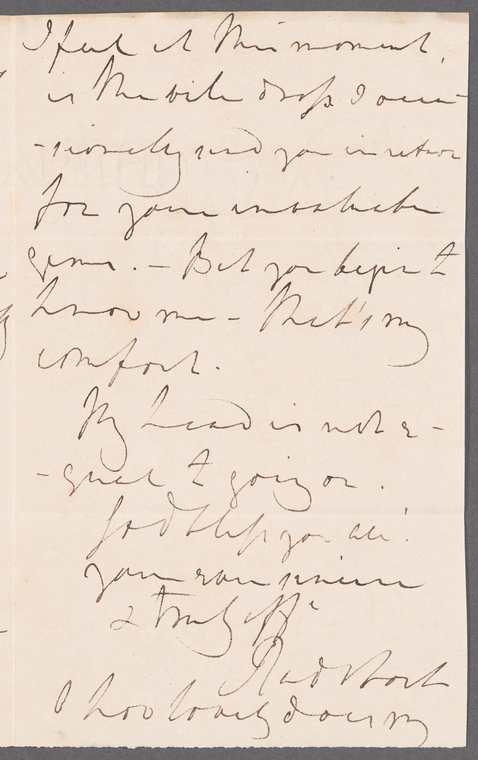 I feel at this moment,
is the vile dross I occa-
-sionally send you in return
for your invaluable
gems. - But you begin to
know me - that's my
comfort.
My head is not e-
-qual to going on.
God bless you all!
your ever sincere
& truly affe
O how lovely does my